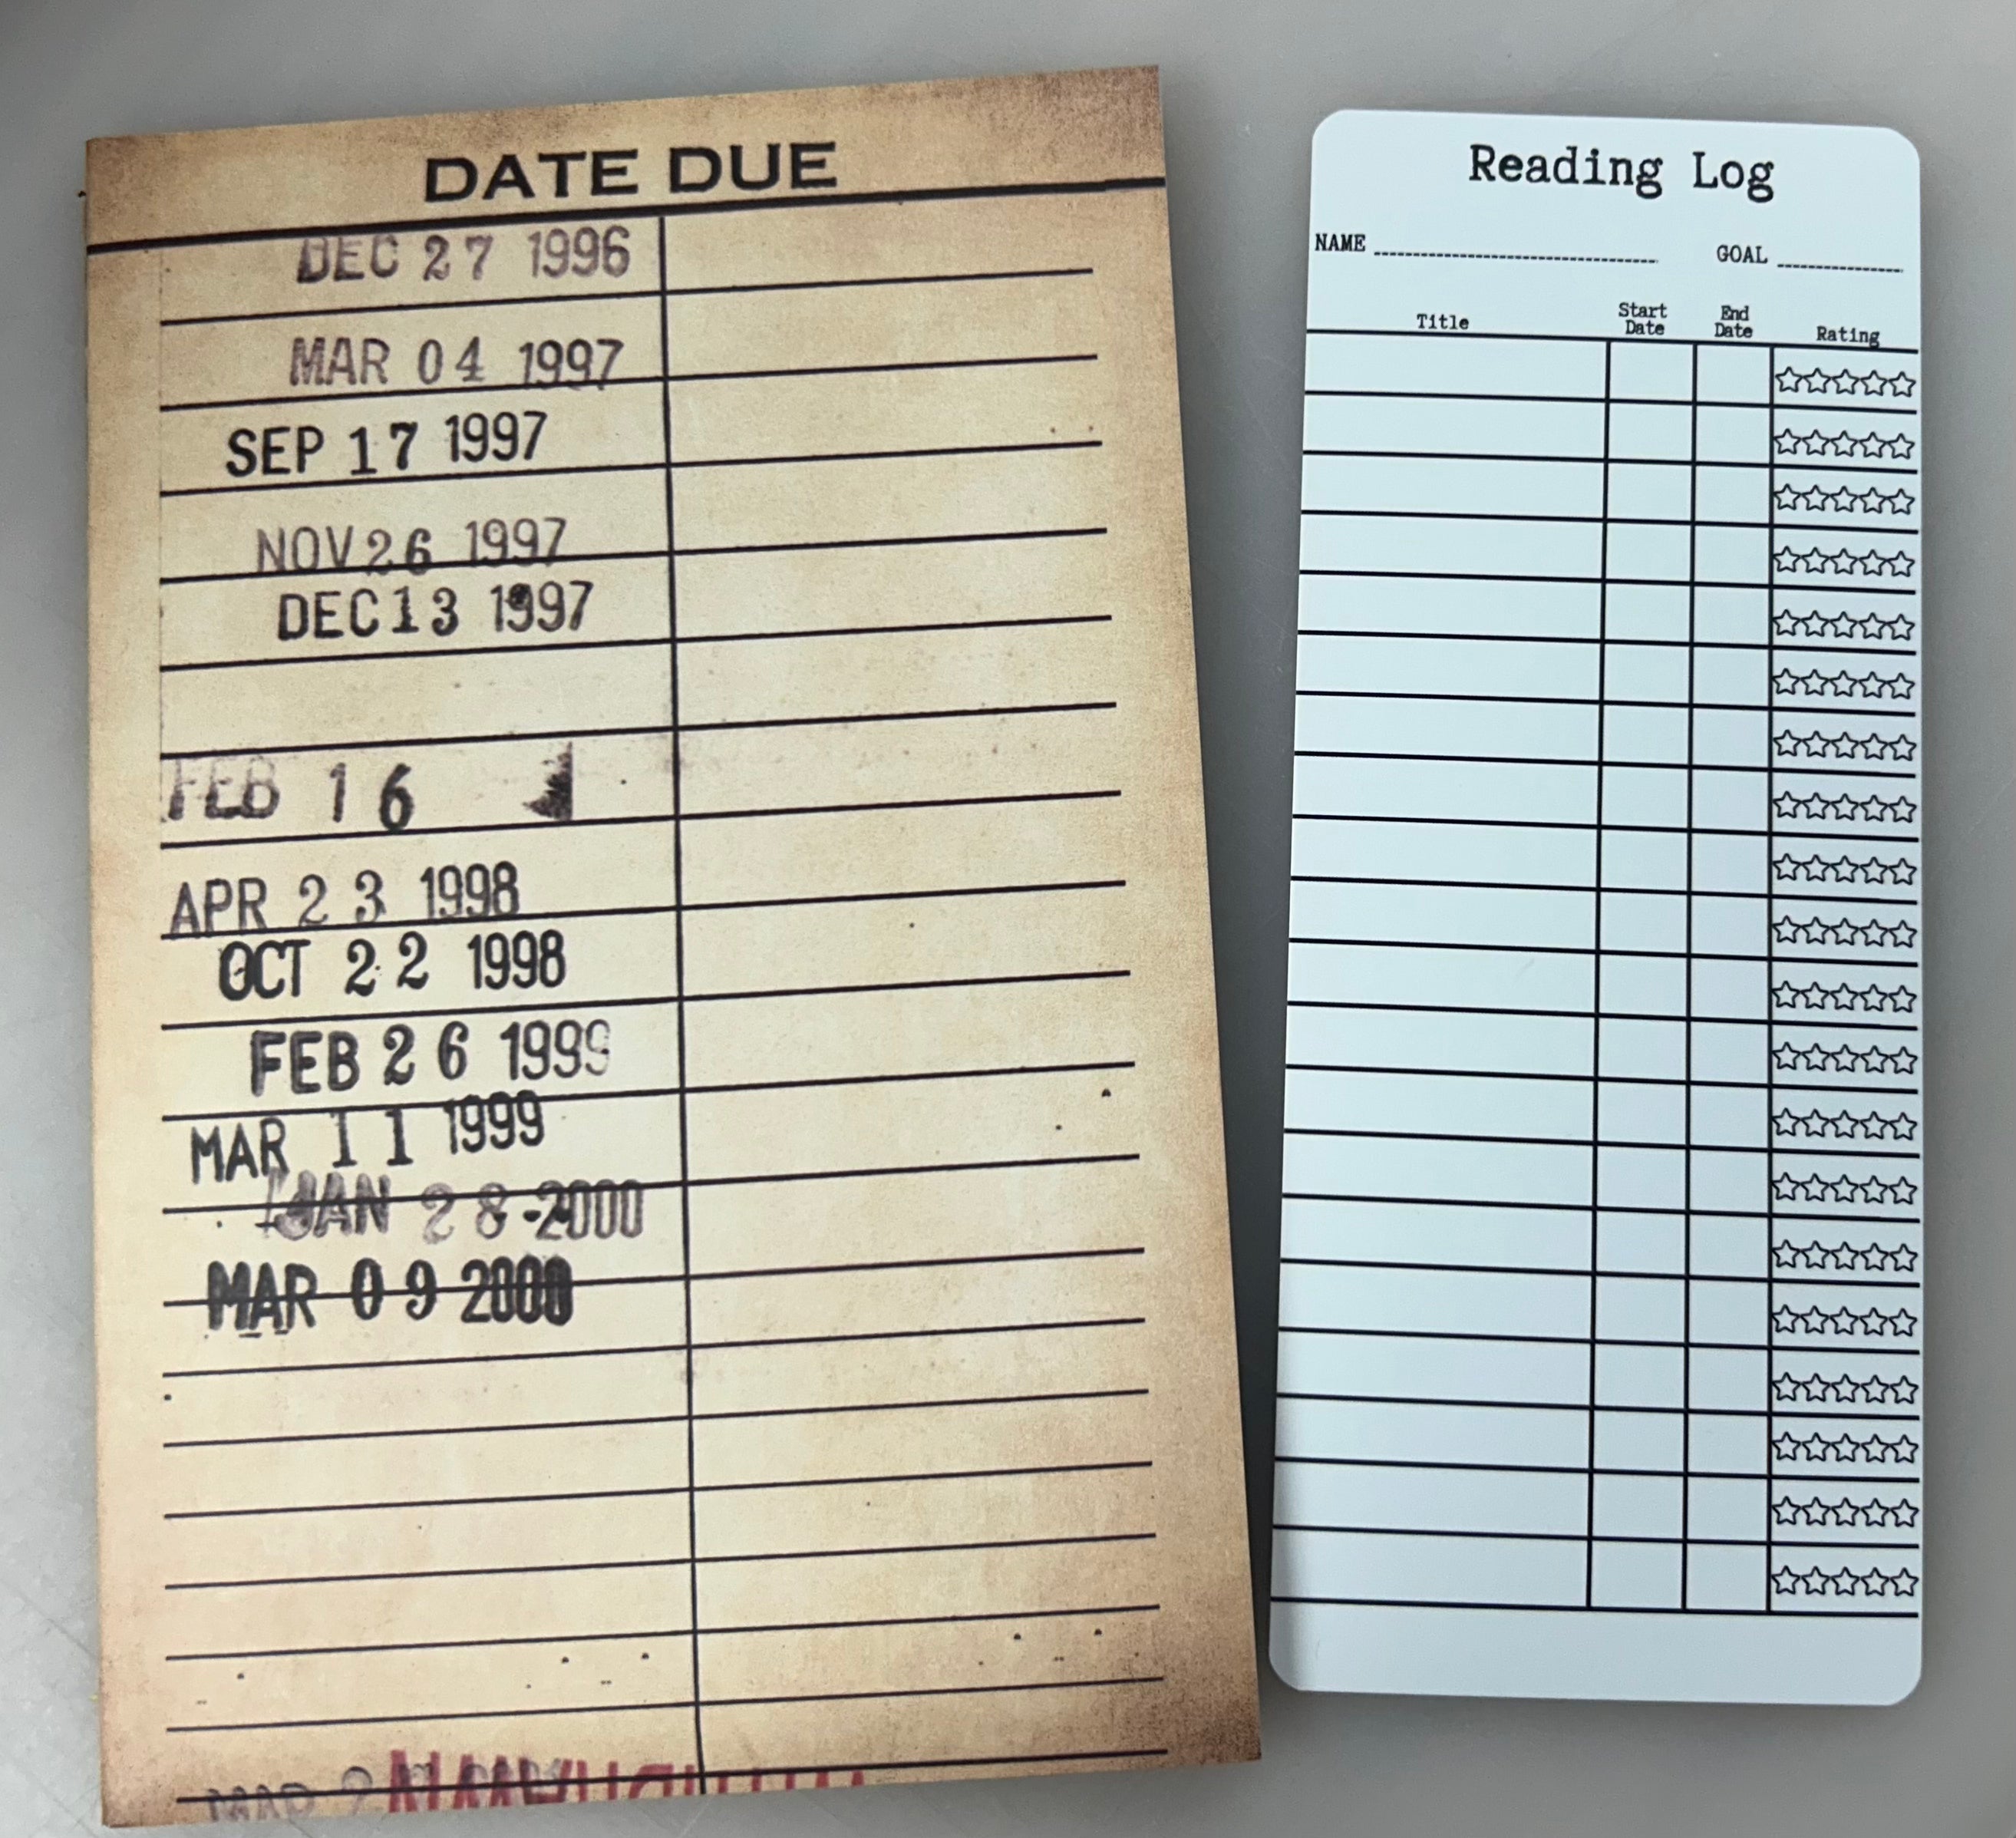 DATE DUE
DEC 27 1996
MAR 04 1997
SEP 17 1997
NOV 26 1997
DEC 13 1997
FEB 16
APR 23 1998
OCT 22 1998
FEB 26 1999
MAR 11 1999
JAN 28 2000
MAR 09 2000
MAR 2
Reading Log
NAME GOAL
Title Start Date End Date Rating